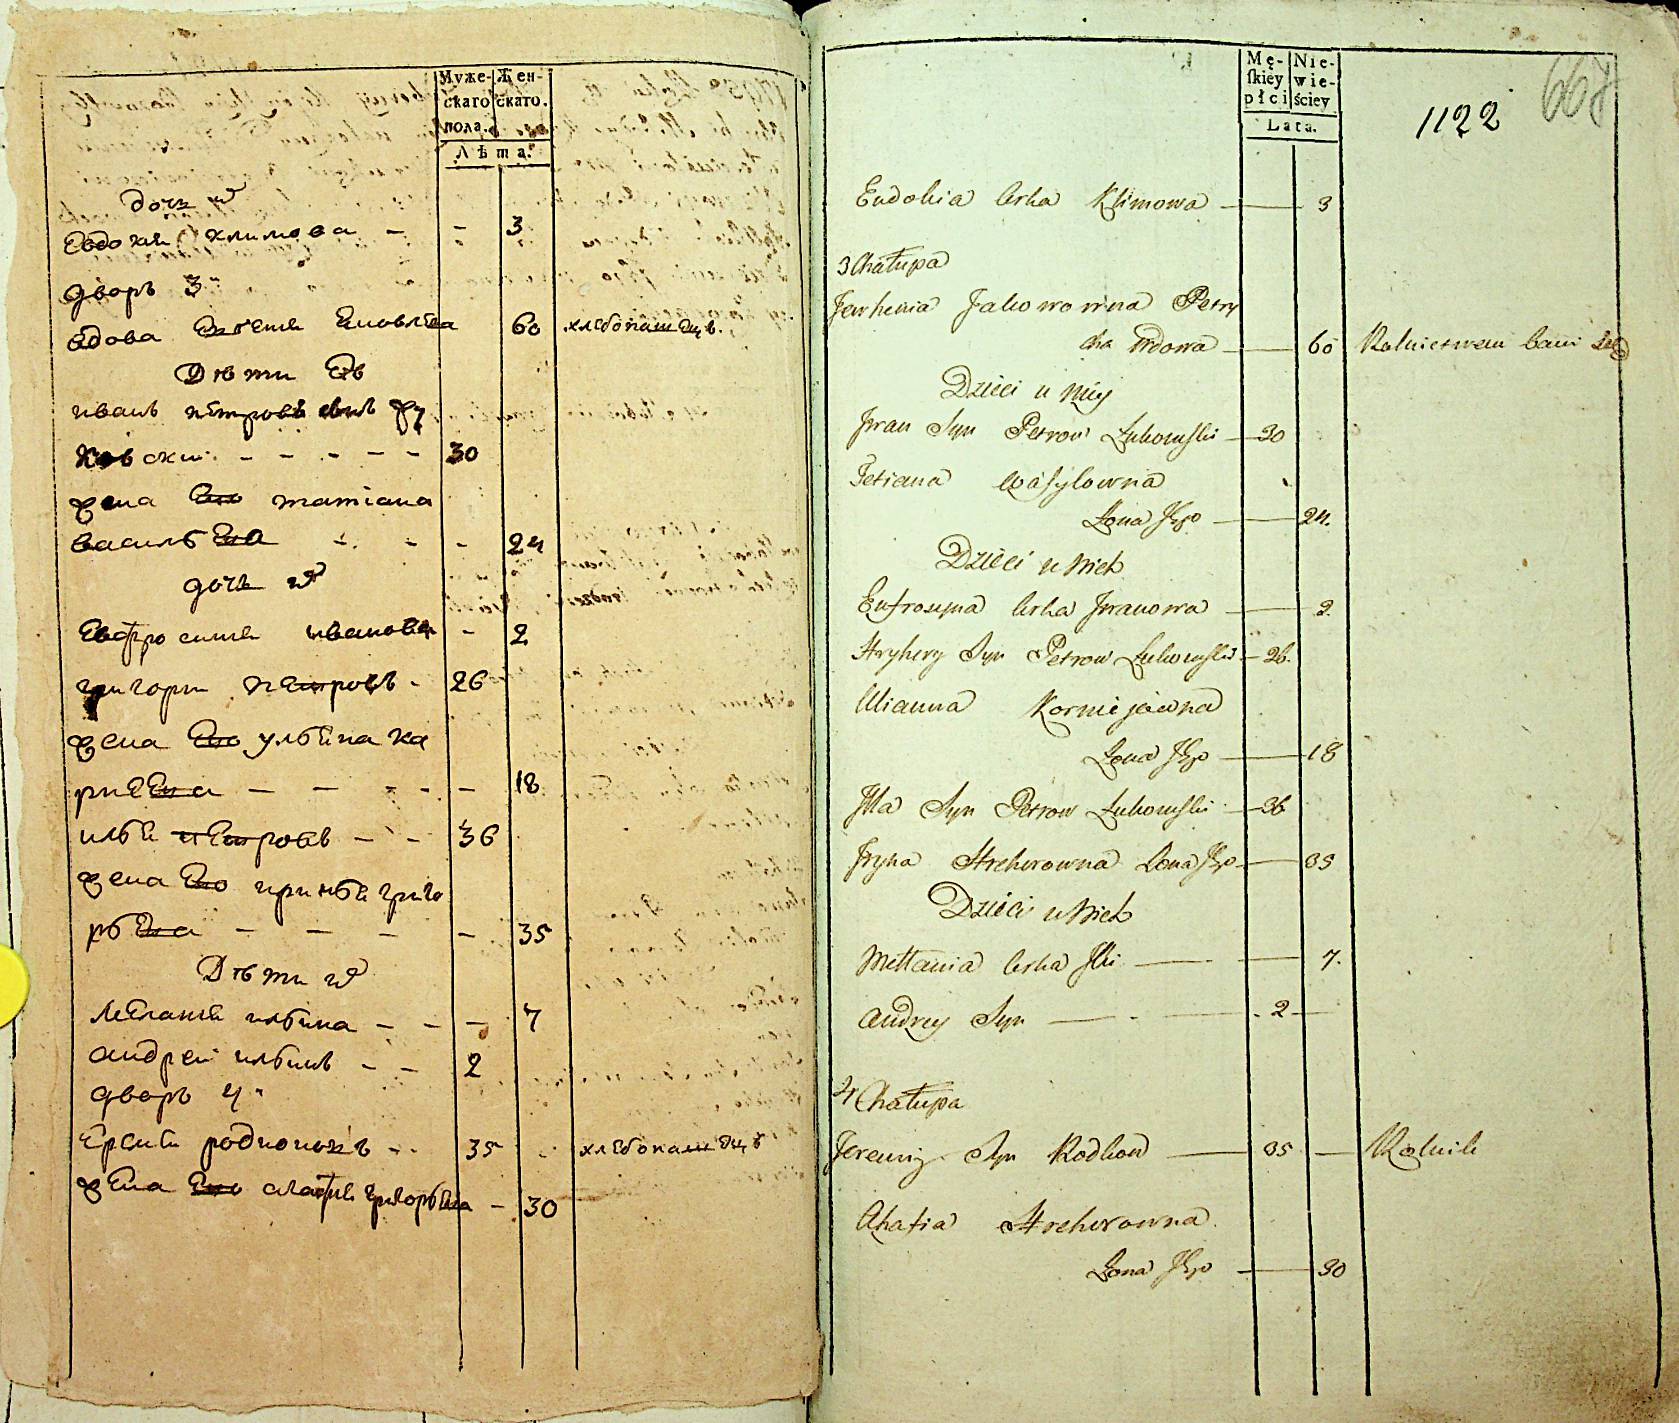 Муже-
скаго
пола.
Жен-
скаго.
Лѣта.
дочь
Евдокия климова - - 3
дворъ 3
вдова Евгения Яковлева 60 хлебопашецъ.
Дѣти Ей
иванъ петровъ сынъ Жу
ковски - - - - - 30
жена Его татиана
василева - - - 24
дочь
Евфросиния иванова - 2
григори петровъ - 26
жена Его улияна ка
рнеева - - - - - 18
илия петровъ - - 36
жена Его ирина григо
рева - - - - 35
Дѣти
Мелания илина - - - 7
андрей илинъ - - 2
дворъ 4
Еремия родионовъ - - 35 хлебопашецъ
жена Его агафия григорева - 30
Mę-
skiey
płci
Nie-
wie-
ściey
Lata.
1122
667
Eudokia Corka Klimowa 3
3 Chałupa
Jewhenia Jakowowna Petry
cha Wdowa 60 Rolnictwem bawi się
Dzieci u Niey
Jwan Syn Petrow Żukowski 30
Tetiana Wasylowna
Żona Jego 24.
Dzieci u Nich
Eufrozyna Corka Jwanowa 2
Hryhory Syn Petrow Żukowski 26.
Ulianna Korniejewna
Żona Jego 18
Jlla Syn Petrow Żukowski 36
Jryna Hrehorowna Żona Jego 35
Dzieci u Nich
Mellania Corka Jlli 7.
Andrey Syn 2
4 Chałupa
Jeremiy Syn Rodion 35 Rolnik
Ahafia Hrehorowna
Żona Jego 30